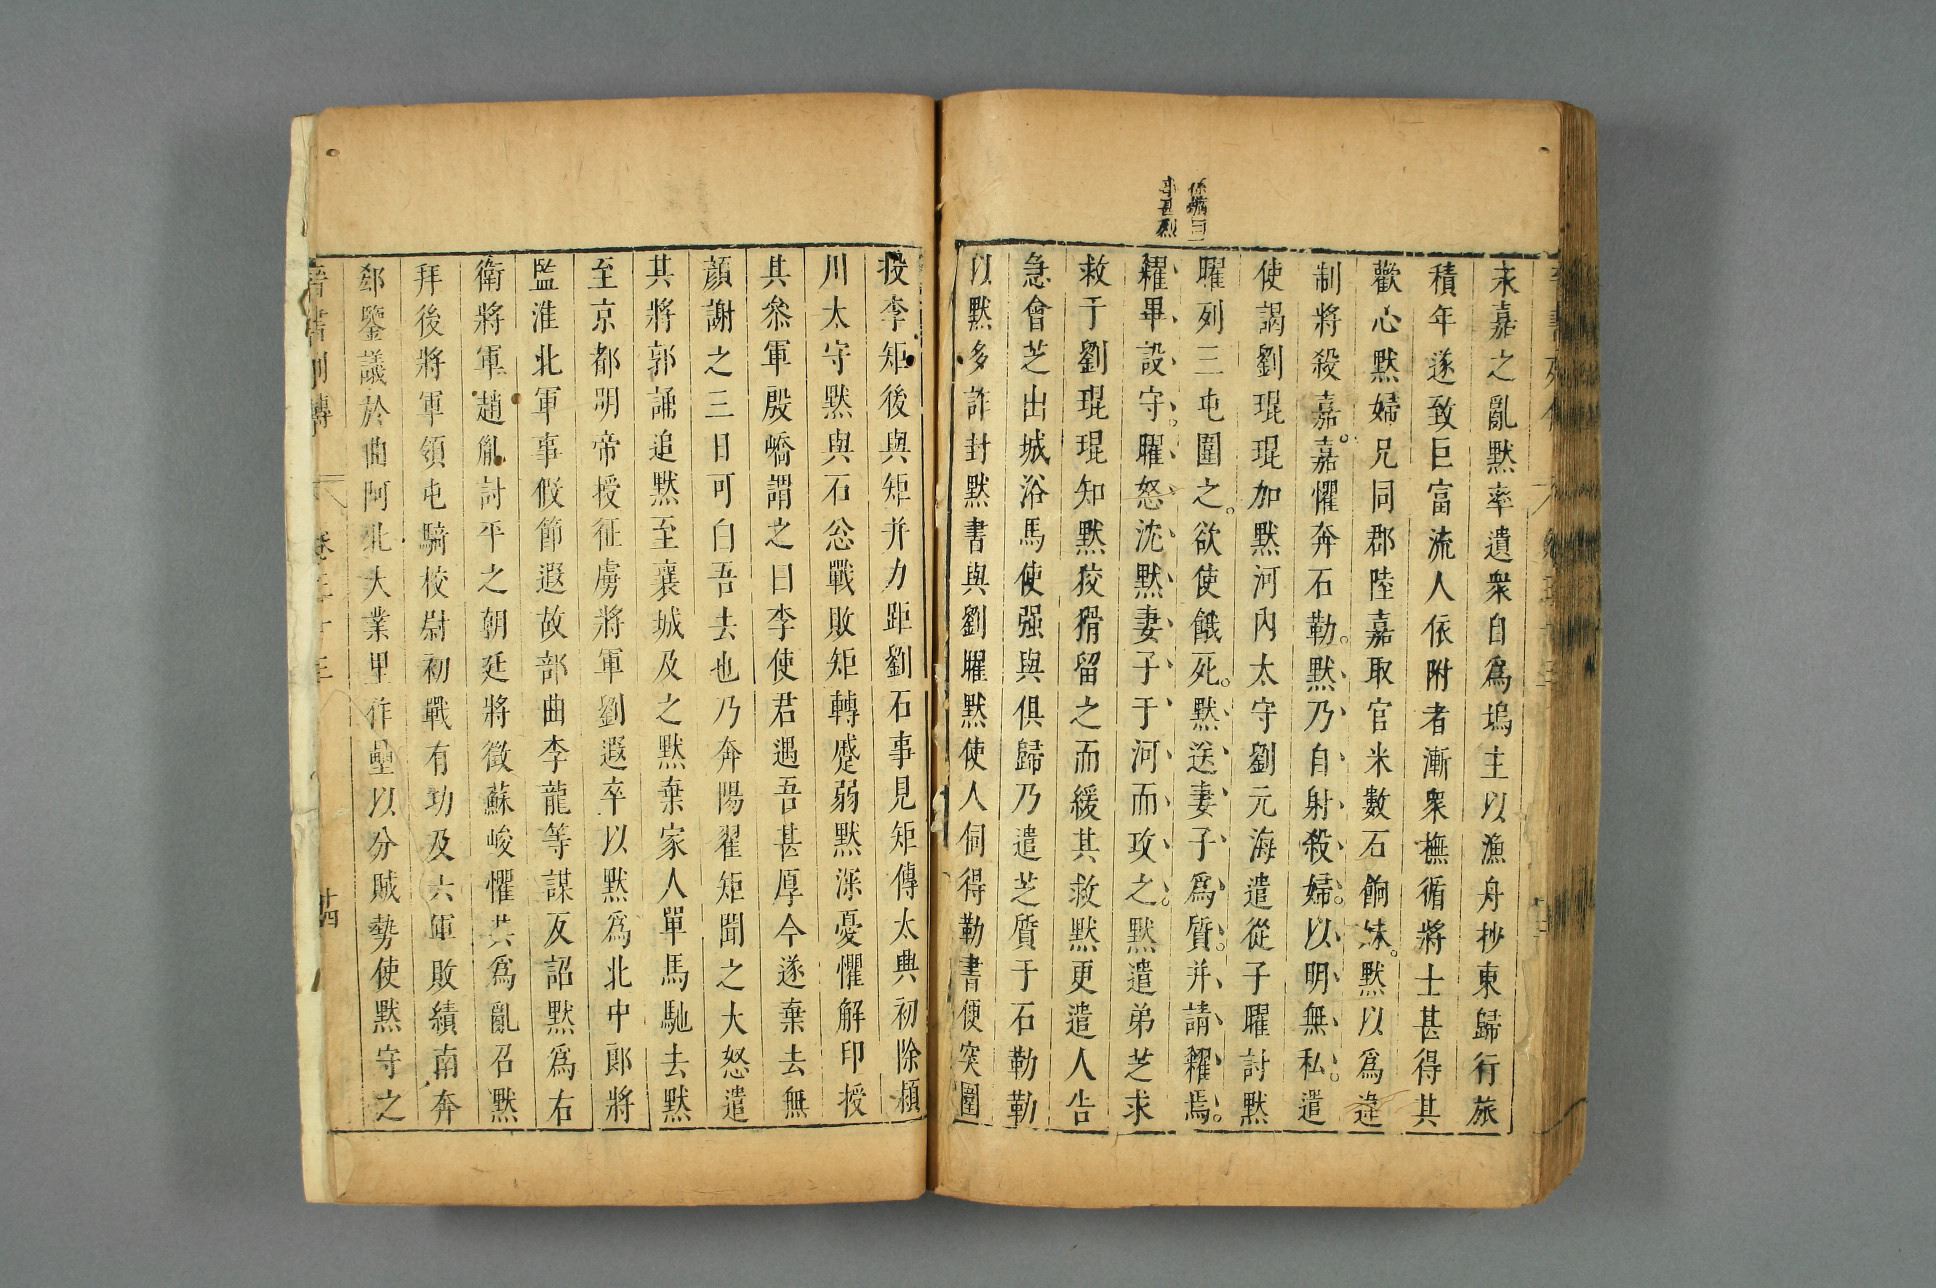 永嘉之亂默率遺衆自爲塢主以漁舟抄東歸行旅
積年遂致巨富流人依附者漸衆撫循將士甚得其
歡心默婦兄同郡陸嘉取官米數石餉妹默以爲違
制將殺嘉嘉懼奔石勒默乃自射殺婦以明無私遣
使謁劉琨琨加默河內太守劉元海遣從子曜討默
曜列三屯圍之欲使餓死默送妻子爲質并請糴焉
糴畢設守曜怒沈默妻子于河而攻之默遣弟芝求
救于劉琨琨知默狡猾留之而緩其救默更遣人告
急會芝出城浴馬使强與俱歸乃遣芝質于石勒勒
以默多詐封默書與劉曜默使人伺得勒書便突圍
投李矩後與矩并力距劉石事見矩傳太興初除潁
川太守默與石忩戰敗矩轉蹙弱默深憂懼解印授
其叅軍殷嶠謂之曰李使君遇吾甚厚今遂棄去無
顏謝之三日可白吾去也乃奔陽翟矩聞之大怒遣
其將郭誦追默至襄城及之默棄家人單馬馳去默
至京都明帝授征虜將軍劉遐卒以默爲北中郎將
監淮北軍事假節遐故部曲李龍等謀反詔默爲右
衛將軍趙胤討平之朝廷將徵蘇峻懼其爲亂召默
拜後將軍領屯騎校尉初戰有功及六軍敗績南奔
郄鑒議於曲阿北大業里作壘以分賊勢使默守之
晉書列傳 卷三十三 廿四